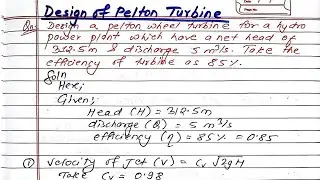 Design of Pelton Turbine
Qn: Design a pelton wheel turbine for a hydro
power plant which have a net head of
312.5m & discharge 5 m³/s. Take the
efficiency of turbine as 85%.
Soln
Here,
Given:
Head (H) = 312.5m
discharge (Q) = 5 m³/s
efficiency (η) = 85% = 0.85
① Velocity of Jet (V) = Cv √2gH
Take Cv = 0.98